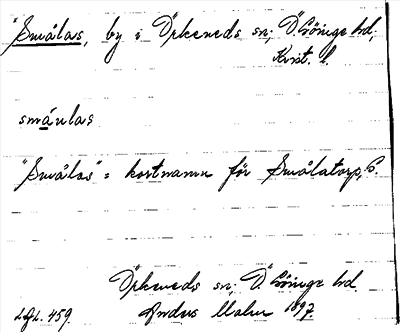 "Smålas, by i Örkeneds sn; Ö. Göinge hd,
Krist. l.
smáulas
"Smålas" = kortnamn för Smålatorp, G.
Örkeneds sn; Ö. Göinge hd.
LGL. 459. Malm 1897.